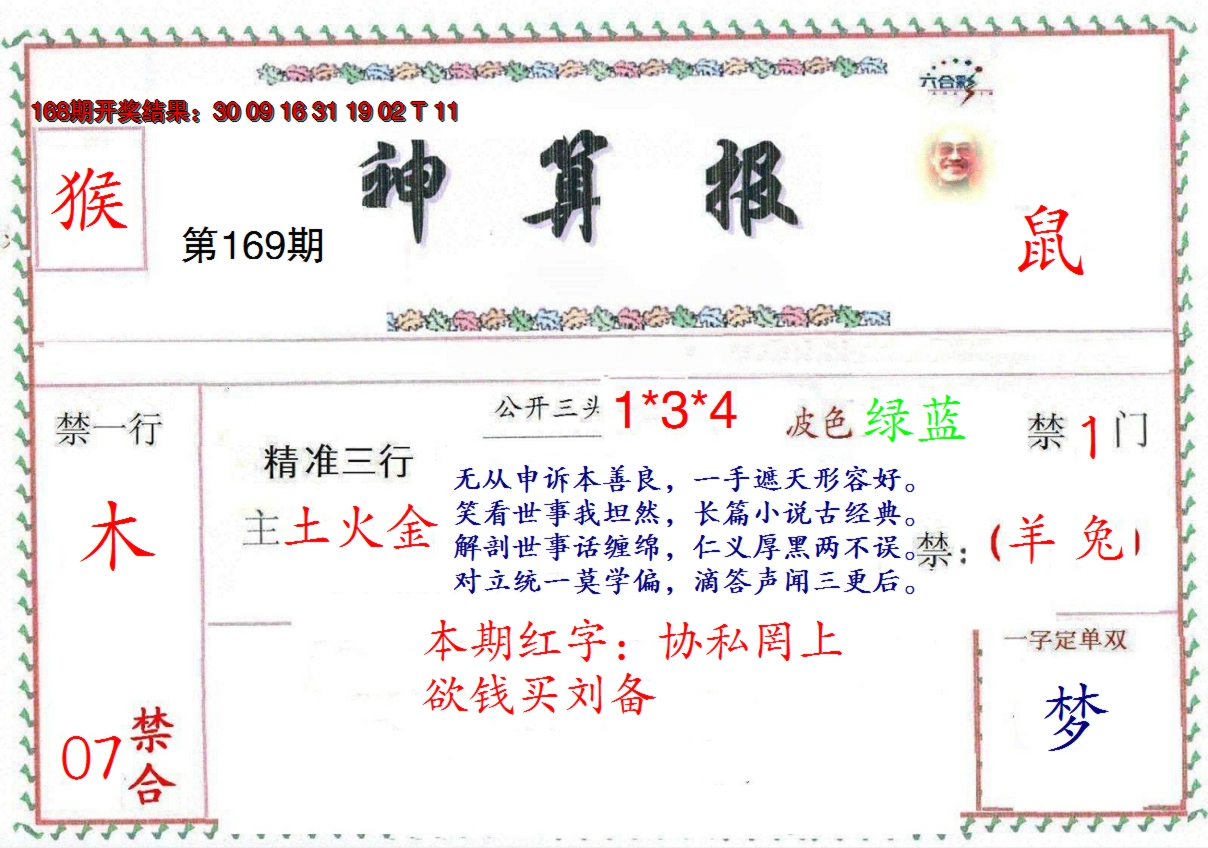 六合彩
168期开奖结果：30 09 16 31 19 02 T 11
猴
神算报
第169期
鼠
禁一行
木
07禁合
公开三头 1*3*4
波色 绿蓝
禁1门
精准三行
主土火金
无从申诉本善良，一手遮天形容好。
笑看世事我坦然，长篇小说古经典。
解剖世事话缠绵，仁义厚黑两不误。
对立统一莫学偏，滴答声闻三更后。
禁：(羊 兔)
本期红字：协私罔上
欲钱买刘备
一字定单双
梦